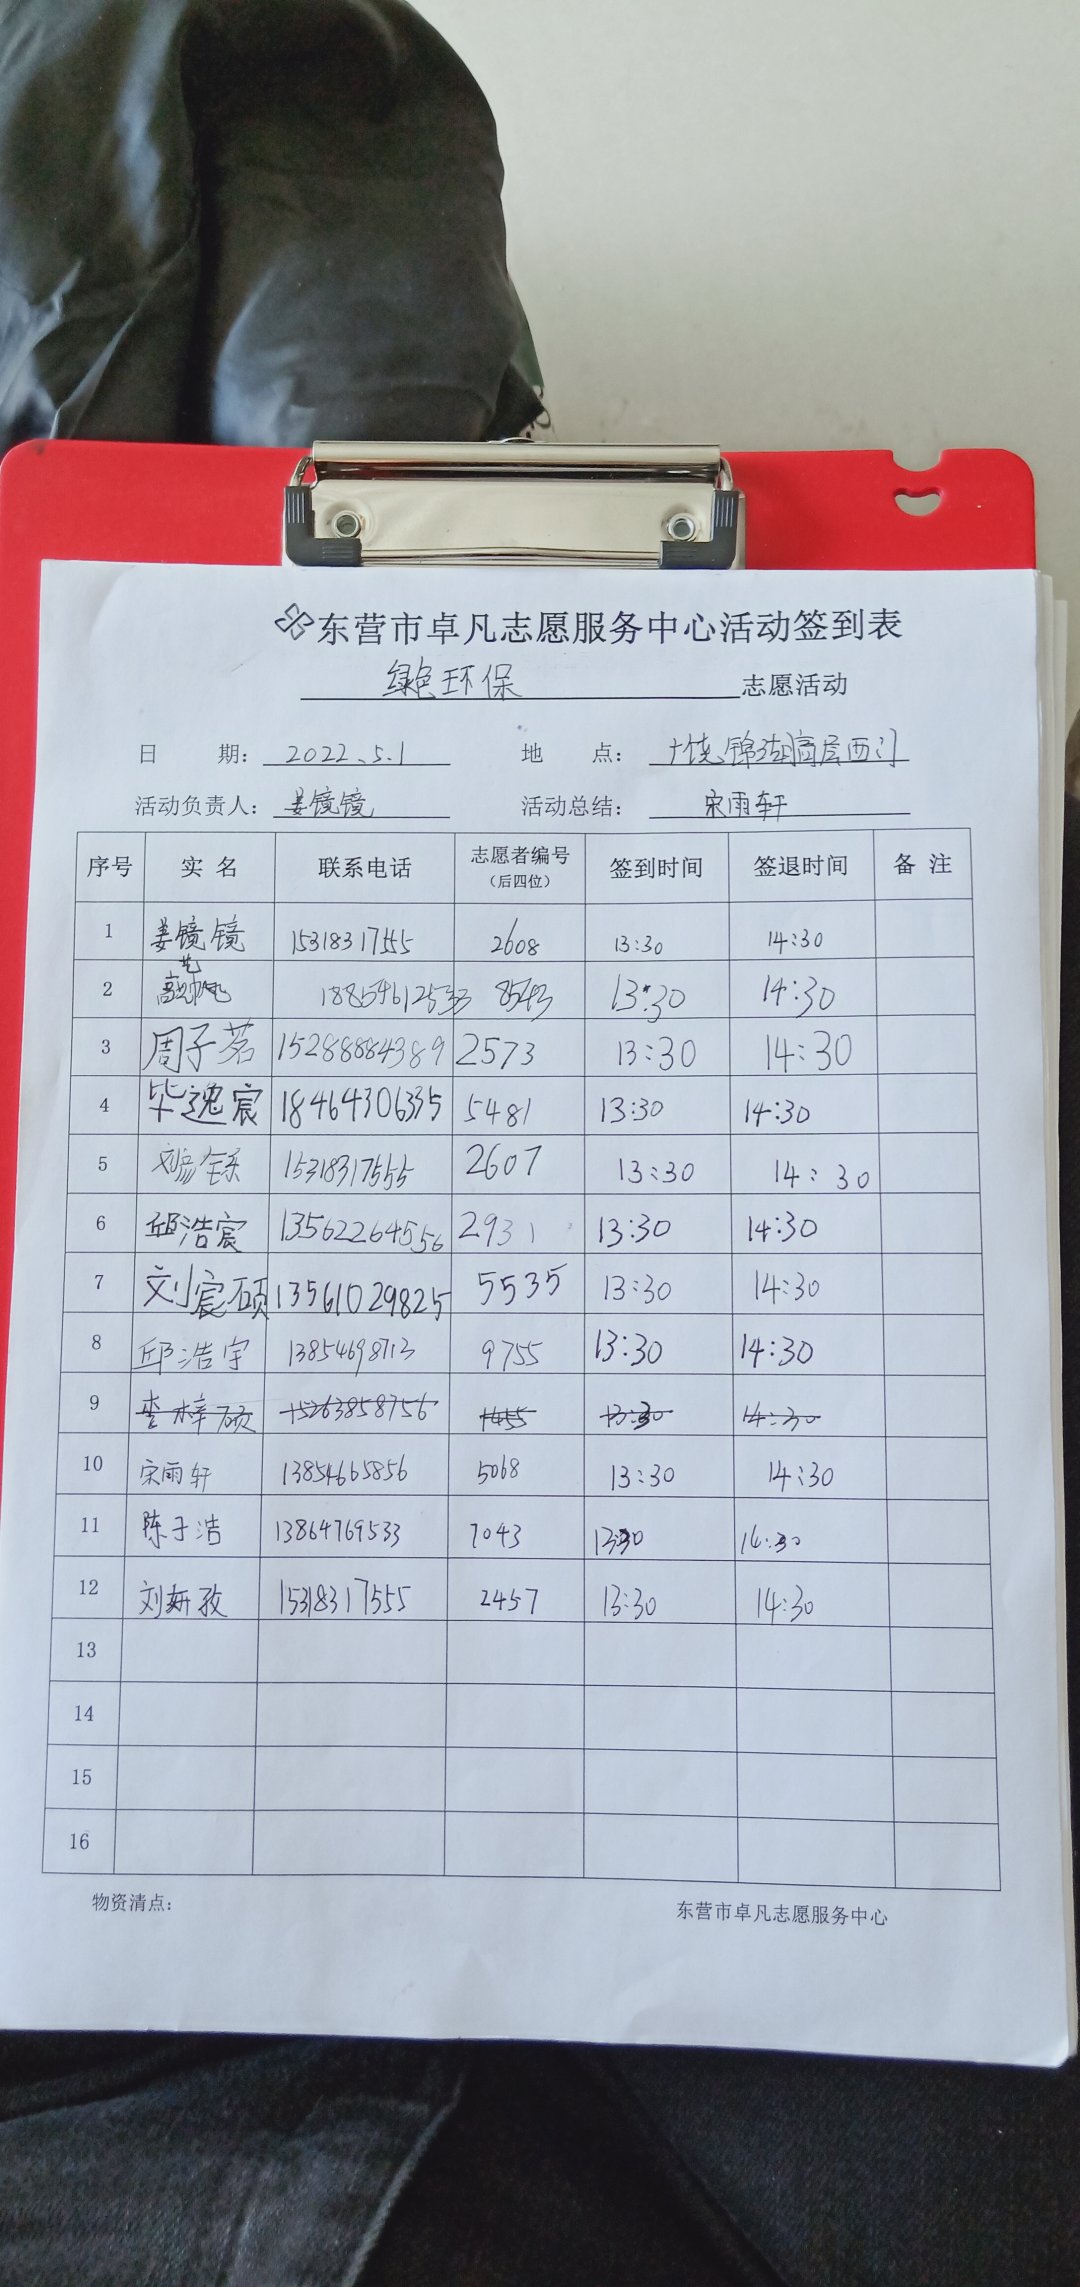 东营市卓凡志愿服务中心活动签到表
绿色环保 志愿活动
日 期: 2022.5.1 地 点: 广饶锦湖高层西门
活动负责人: 姜镜镜 活动总结: 宋雨轩
序号 实名 联系电话 志愿者编号(后四位) 签到时间 签退时间 备注
1 姜镜镜 15318317555 2608 13:30 14:30
2 18854612533 8543 13:30 14:30
3 周子茗 15288884389 2573 13:30 14:30
4 毕逸宸 18464306335 5481 13:30 14:30
5 15318317555 2607 13:30 14:30
6 邱浩宸 13562264556 2931 13:30 14:30
7 刘宸硕 13561029825 5535 13:30 14:30
8 邱浩宇 13854698713 9755 13:30 14:30
9 李梓硕 15263858756 1455 13:30 14:30
10 宋雨轩 13854665856 5068 13:30 14:30
11 陈子浩 13864769533 7043 13:30 14:30
12 刘妍孜 15318317555 2457 13:30 14:30
13
14
15
16
物资清点: 东营市卓凡志愿服务中心